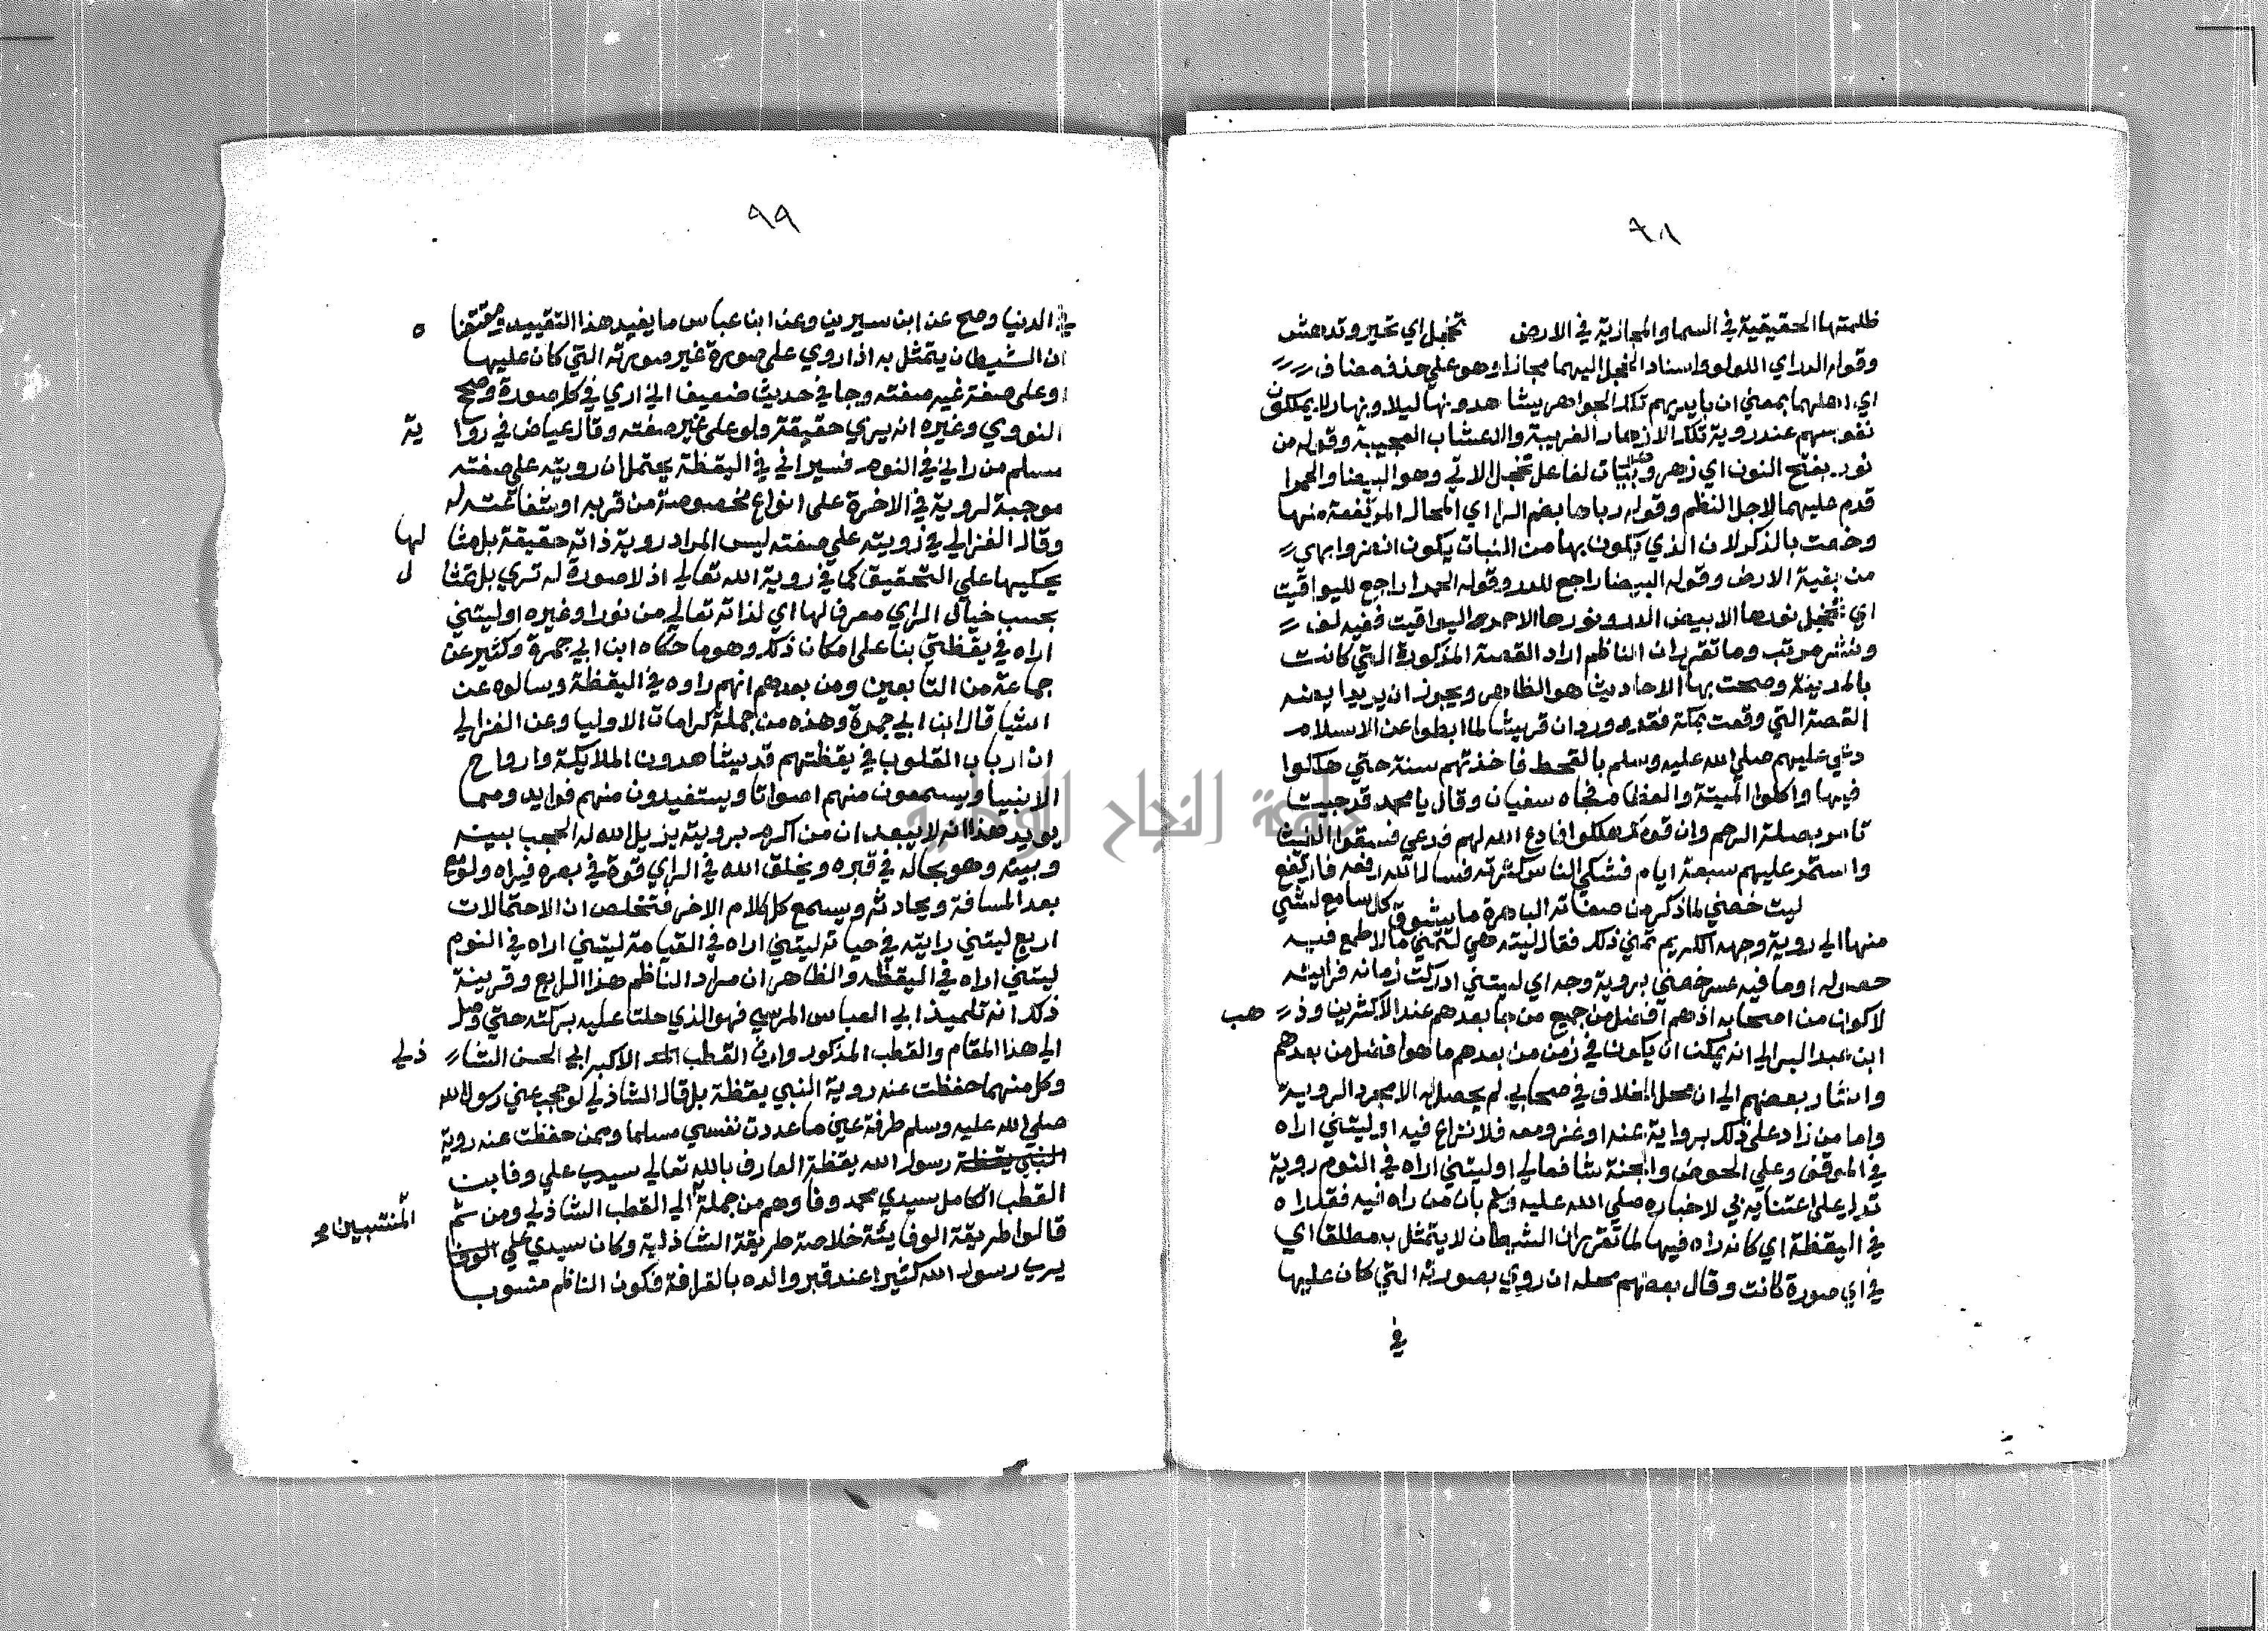 ٩٨
ظلمتها الحقيقية في السما والمجازية في الارض تخجل اي تحير وتدهش
وقوله الدر اي اللولو واسناد الخجل اليهما مجازا وهو على حذف مضاف
اي اهلهما بمعني ان بايديهم تلك الجواهر يشاهدونها ليلا ونهارا لا يملكون
نفوسهم عند روية تلك الازهار الغريبة والاعشاب العجيبة وقوله من
نور بفتح النون اي زهر ونبات لفاعل تخجل الاتي وهو البيضا والحمرا
قدم عليهما لاجل النظم وقوله رباها بضم الرا اي المحال المرتفعة منها
وخصت بالذكر لان الذي يكون بها من النبات يكون انضر وابهى
من بقية الارض وقوله البيضا راجع للدر وقوله الحمرا راجع لليواقيت
اي تخجل نورها الابيض الدر ونورها الاحمر اليواقيت ففيه لف
ونشر مرتب وما تقرر ان الناظم اراد القصة المذكورة التي كانت
بالمدينة وصحت بها الاحاديث هو الظاهر ويجوز ان يريد ايضا
القصة التي وقعت بمكة فقد ورد ان قريشا لما ابطوا عن الاسلام
دعي عليهم صلي الله عليه وسلم بالقحط فاخذتهم سنة حتي هلكوا
فيها واكلوا الميتة والعظام فجاه سفيان وقال يا محمد قد جيت
تامر بصلة الرحم وان قومك هلكوا فادع الله لهم فدعي فسقوا الغيث
واستمر عليهم سبعة ايام فشكي الناس كثرته فسال الله رفعه فارتفع
ليت خصني لما ذكر من صفاته الباهرة ما يشوق كل سامع لشي
منها الي روية وجهه الكريم تمني ذلك فقال ليته هي لتمني ما لا طمع فيه
حصوله او ما فيه عسر خصني بروية وجه اي ليتني ادركت زمانه فرايته
لاكون من اصحابه اذ هم افضل من جميع من جا بعدهم عند الاكثرين وذهب
ابن عبد البر الي انه يمكن ان يكون في زمن من بعدهم ما هو افضل من بعدهم
واشار بعضهم الي ان محل الخلاف في صحابي لم يحصل له الا مجرد الروية
واما من زاد على ذلك برواية عنه او غزو معه فلا نزاع فيه او ليتني اراه
في الموقف وعلي الحوض والجنة شافعا لي او ليتني اراه في النوم روية
تدل على اعتنايه بي لاخباره صلي الله عليه وسلم بان من راه فيه فقد راه
في اليقظة اي كانه راه فيها لما تقرر ان الشيطان لا يتمثل به مطلقا اي
في اي صورة كانت وقال بعضهم محله ان روي بصورته التي كان عليها
في
٩٩
في الدنيا وصح عن ابن سيرين وعن ابن عباس ما يفيد هذا التقييد ومقتضاه
ان الشيطان يتمثل به اذا روي على صورة غير صورته التي كان عليها
او على صفة غير صفته وجا في حديث ضعيف اني اري في كل صورة وصحح
النووي وغيره انه يري حقيقة ولو على غير صفته وقال عياض في رواية
مسلم من راني في النوم فسيراني في اليقظة يحتمل ان رويته على صفته
موجبة لروية في الاخرة على انواع مخصوصة من قربه او شفاعته له
وقال الغزالي في رويته على صفته ليس المراد روية ذاته حقيقة بل مثالها
يحكيها علي التحقيق كما في روية الله تعالي اذ لا صورة له تري بل تمثل
بحسب خيال الراي معرفا لها اي لذاته تعالي من نور او غيره او ليتني
اراه في يقظتي بنا على امكان ذلك وهو ما حكاه ابن ابي جمرة وكثير عن
جماعة من التابعين ومن بعدهم انهم راوه في اليقظة وسالوه عن
اشيا قال ابن ابي جمرة وهذه من جملة كرامات الاوليا وعن الغزالي
ان ارباب القلوب في يقظتهم قد يشاهدون الملايكة وارواح
الانبيا ويسمعون منهم اصواتا ويستفيدون منهم فوايد ومما
يويد هذا انه لا يبعد ان من اكرم برويته يزيل الله له الحجب بينه
وبينه وهو بحاله في قبره ويخلق الله في الراي قوة في بصره فيراه ولو مع
بعد المسافة ويحادثه ويسمع كل كلام الاخر فتخلص ان الاحتمالات
اربع ليتني رايته في حياته ليتني اراه في القيامة ليتني اراه في النوم
ليتني اراه في اليقظه والظاهر ان مراد الناظم هذا الرابع وقرينة
ذلك انه تلميذ ابي العباس المرسي فهو الذي حلت عليه بركته حتي وصل
الي هذا المقام والقطب المذكور وارث القطب الاكبر ابي الحسن الشاذلي
وكل منهما حفظت عنه روية النبي يقظة بل قال الشاذلي لو حجب عني رسول الله
صلي الله عليه وسلم طرفة عين ما عددت نفسي مسلما وممن حفظت عنه روية
النبي يقظة رسول الله يقظة العارف بالله تعالي سيدي علي وفا بن
القطب الكامل سيدي محمد وفا وهم من جملة المنتسبين الي القطب الشاذلي ومن ثم
قالوا طريقة الوفايية خلاصة طريقة الشاذلية وكان سيدي علي الوفا
يري رسول الله كثيرا عند قبر والده بالقرافة فكون الناظم منسوب
جامعة النجاح الوطنية